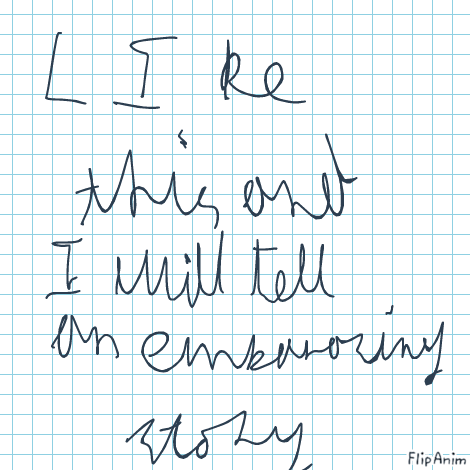 LIke
this and
I will tell
an embarozing
story
FlipAnim